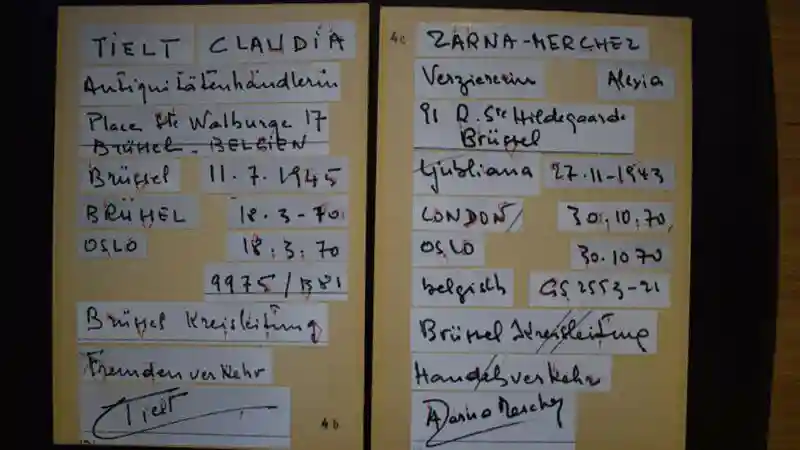 TIELT CLAUDIA
Antiquitätenhändlerin
Place Ste Walburge 17
BRÜSSEL. BELGIEN
Brüssel 11.7.1945
BRÜHEL 18.3-70
OSLO 18.3.70
9975/B81
Brüssel Kreisleitung
Fremdenverkehr
Tielt
4b
4c ZARNA-MERCHEZ
Verziererin Alexia
91 R. Ste Hildegaarde
Brüssel
Ljubliana 27.11-1943
LONDON 30.10.70
OSLO 30.10 70
belgisch GS 2553-21
Brüssel Kreisleitung
Handelsverkehr